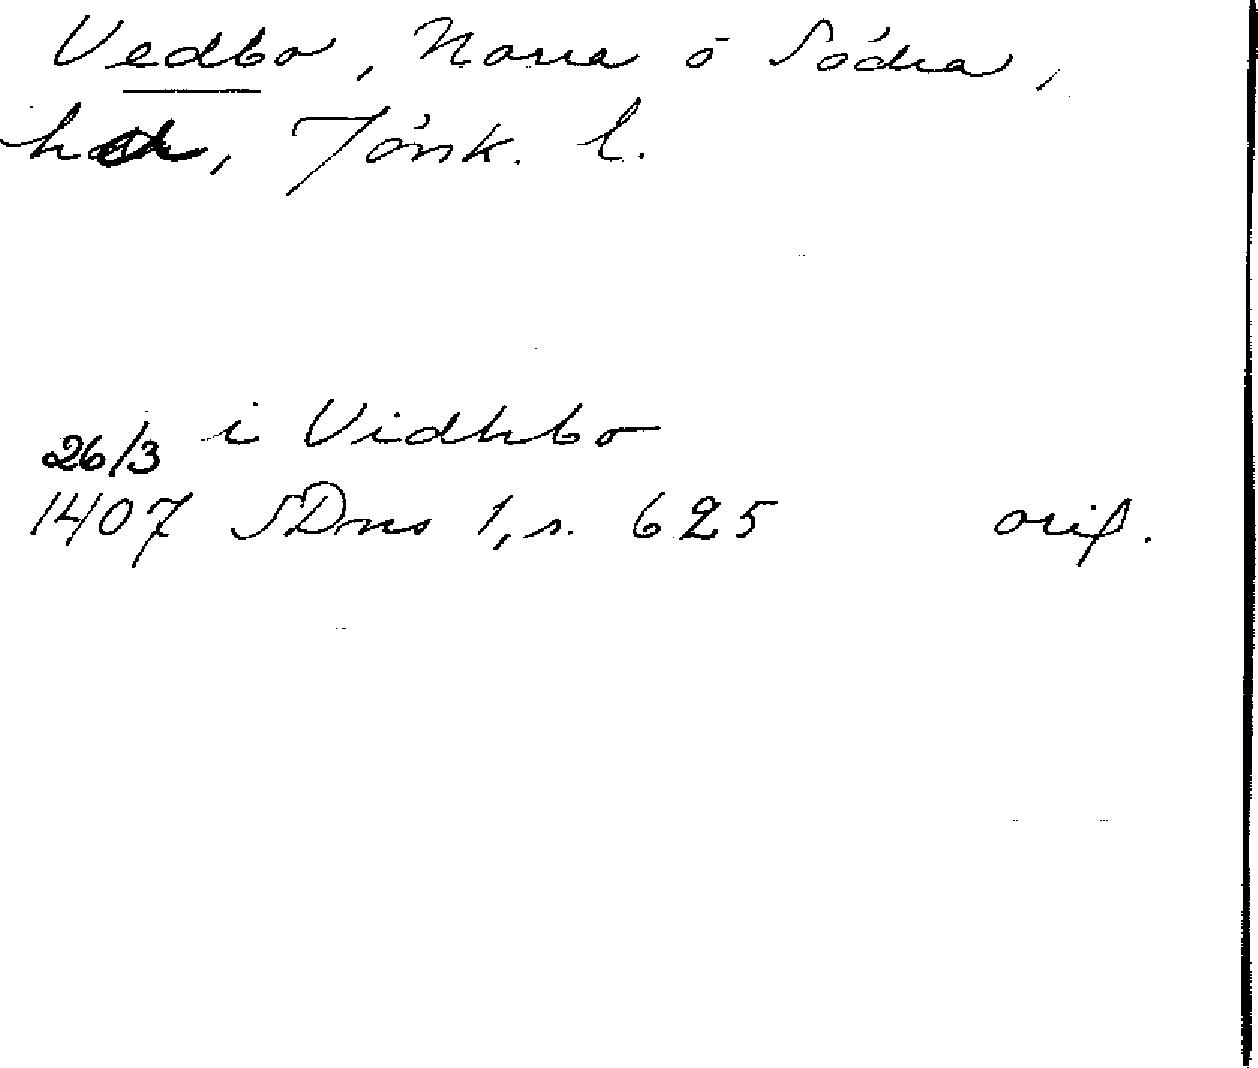 Vedbo, Norra o Södra,
hd, Jönk. l.
i Vidhbo
26/3
1407 SDns 1, s. 625 orig.